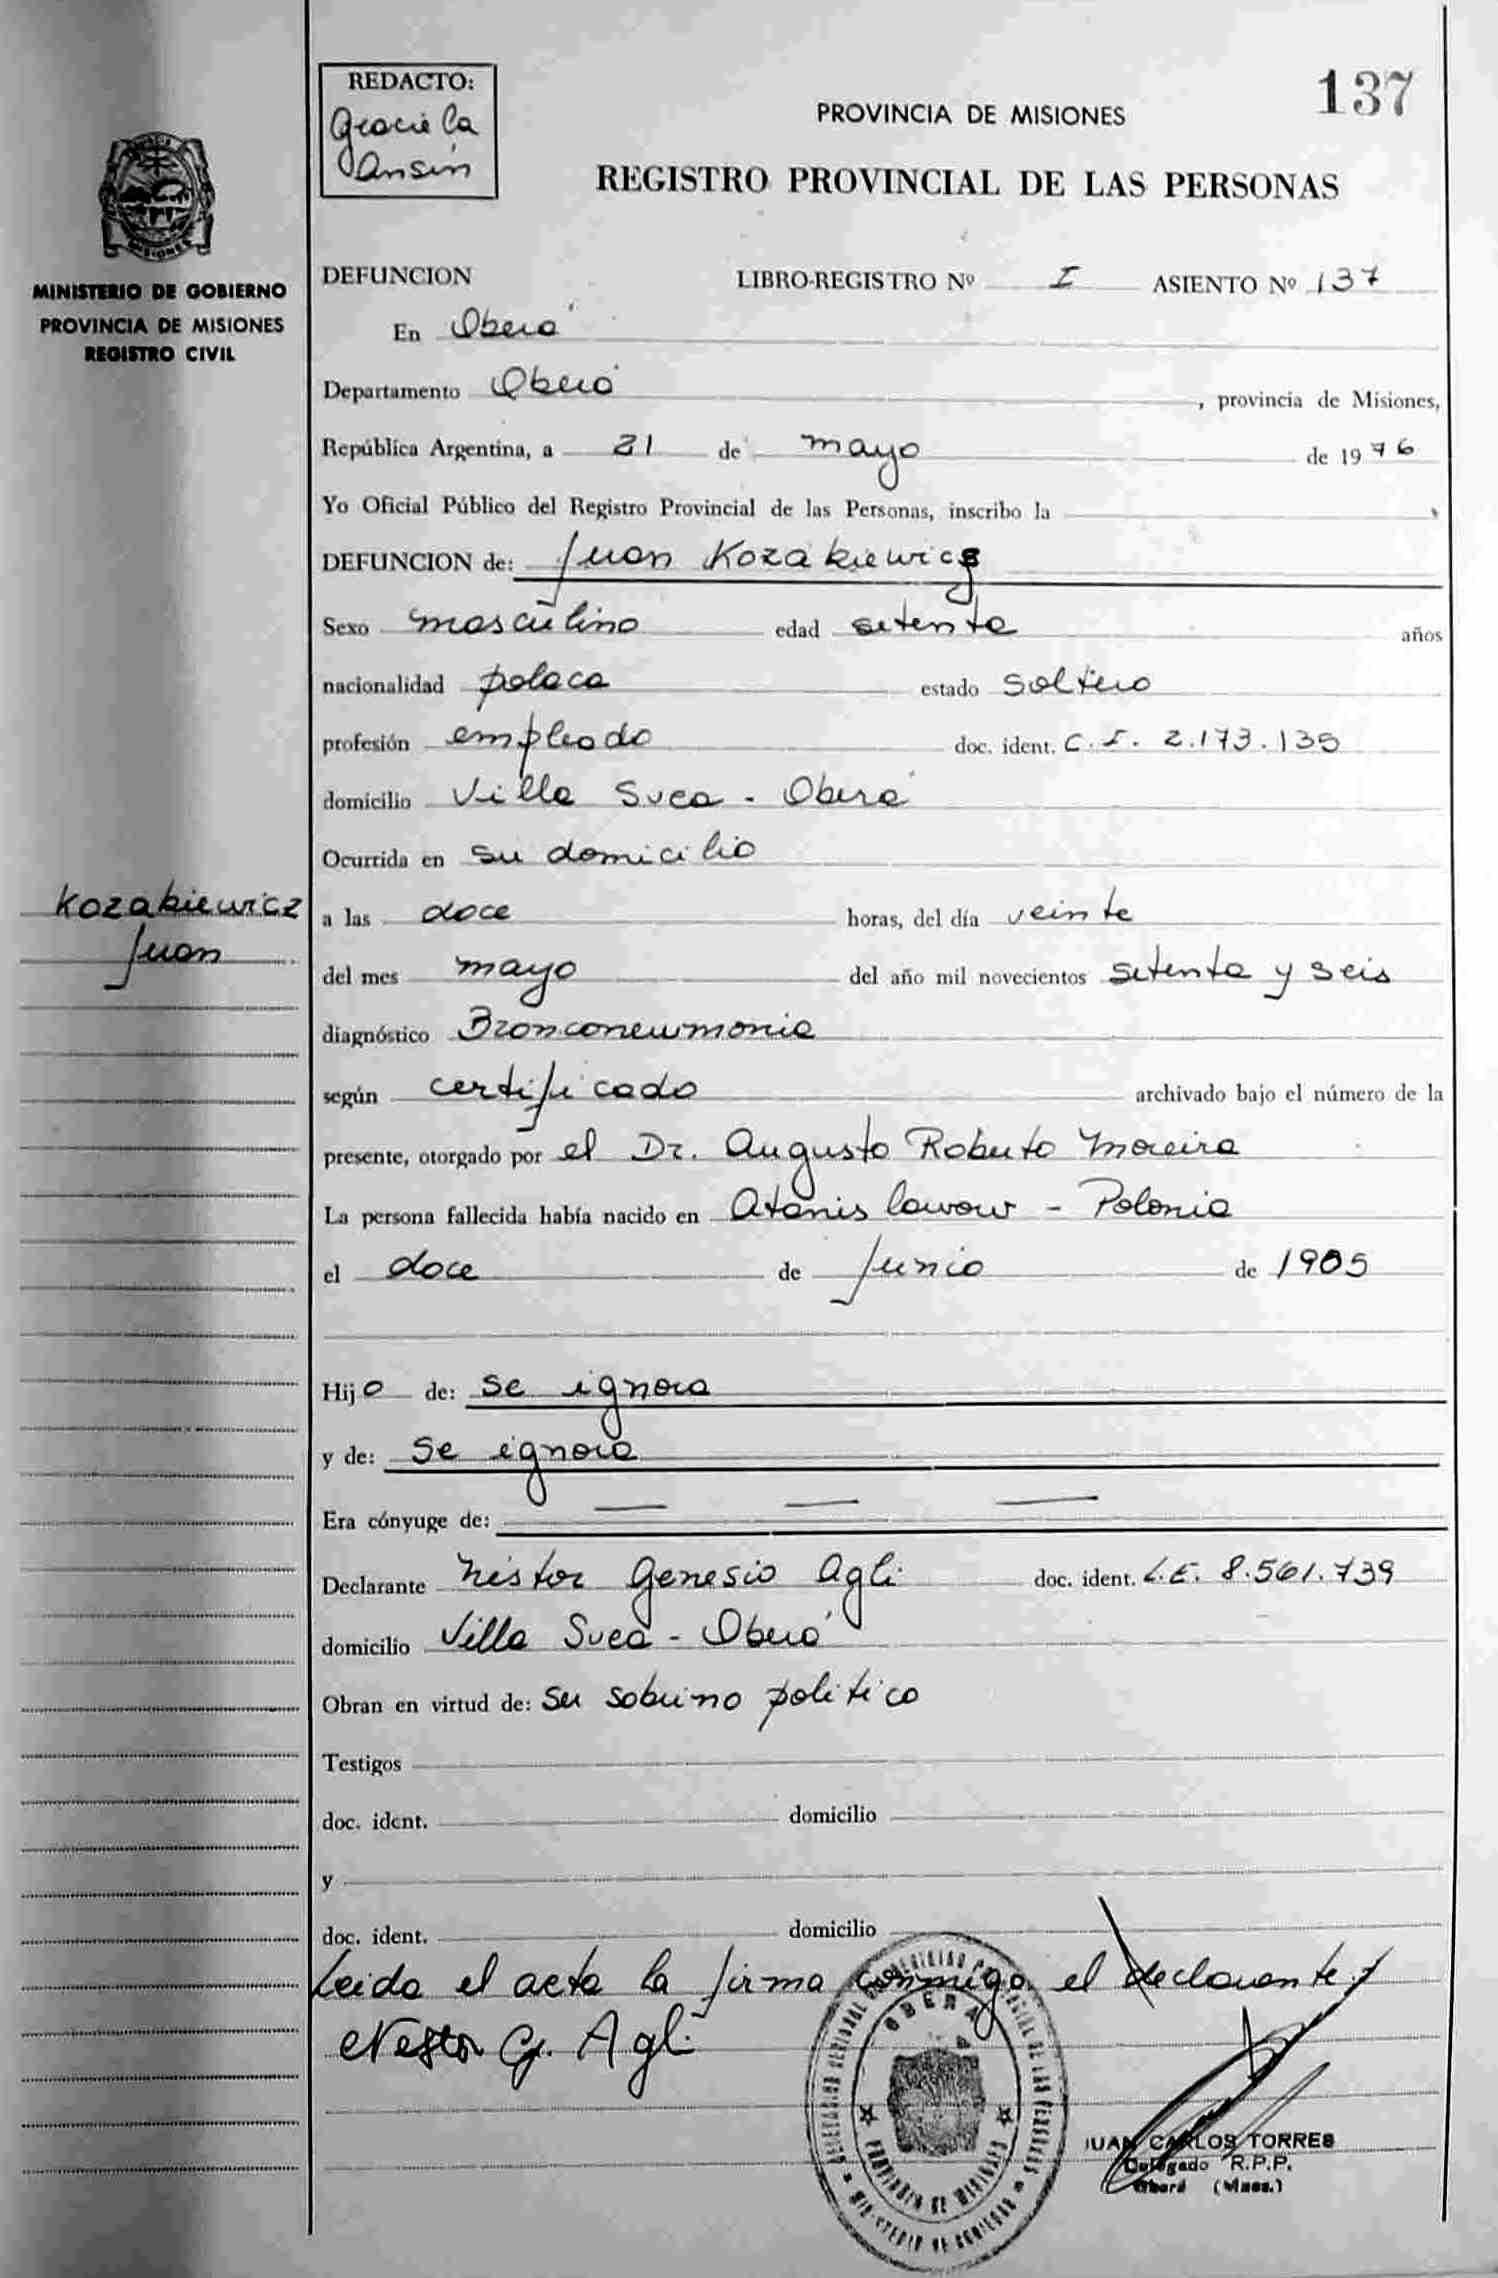 REDACTO:
Graciela
Ansin
137
PROVINCIA DE MISIONES
REGISTRO PROVINCIAL DE LAS PERSONAS
MINISTERIO DE GOBIERNO
PROVINCIA DE MISIONES
REGISTRO CIVIL
DEFUNCION LIBRO-REGISTRO Nº I ASIENTO Nº 137
En Oberá
Departamento Oberá, provincia de Misiones,
República Argentina, a 21 de mayo de 1976
Yo Oficial Público del Registro Provincial de las Personas, inscribo la
DEFUNCION de: Juan Kozakiewicz
Sexo masculino edad setenta años
nacionalidad polaca estado soltero
profesión empleado doc. ident. C.I. 2.173.135
domicilio Villa Svea - Oberá
Ocurrida en su domicilio
Kozakiewicz
Juan
a las doce horas, del día veinte
del mes mayo del año mil novecientos setenta y seis
diagnóstico Bronconeumonia
según certificado archivado bajo el número de la
presente, otorgado por el Dr. Augusto Roberto Moreira
La persona fallecida había nacido en Atanislawow - Polonia
el doce de Junio de 1905
Hijo de: se ignora
y de: Se ignora
Era cónyuge de: — — —
Declarante Néstor Genesio Agli doc. ident. L.E. 8.561.739
domicilio Villa Svea - Oberá
Obran en virtud de: su sobrino politico
Testigos
doc. ident. domicilio
y
doc. ident. domicilio
Leida el acta la firma conmigo el declarante.
Nestor G. Agli
OBERA
PROVINCIA DE MISIONES
MINISTERIO DE GOBIERNO
JUAN CARLOS TORRES
Delegado R.P.P.
Oberá (Mnes.)